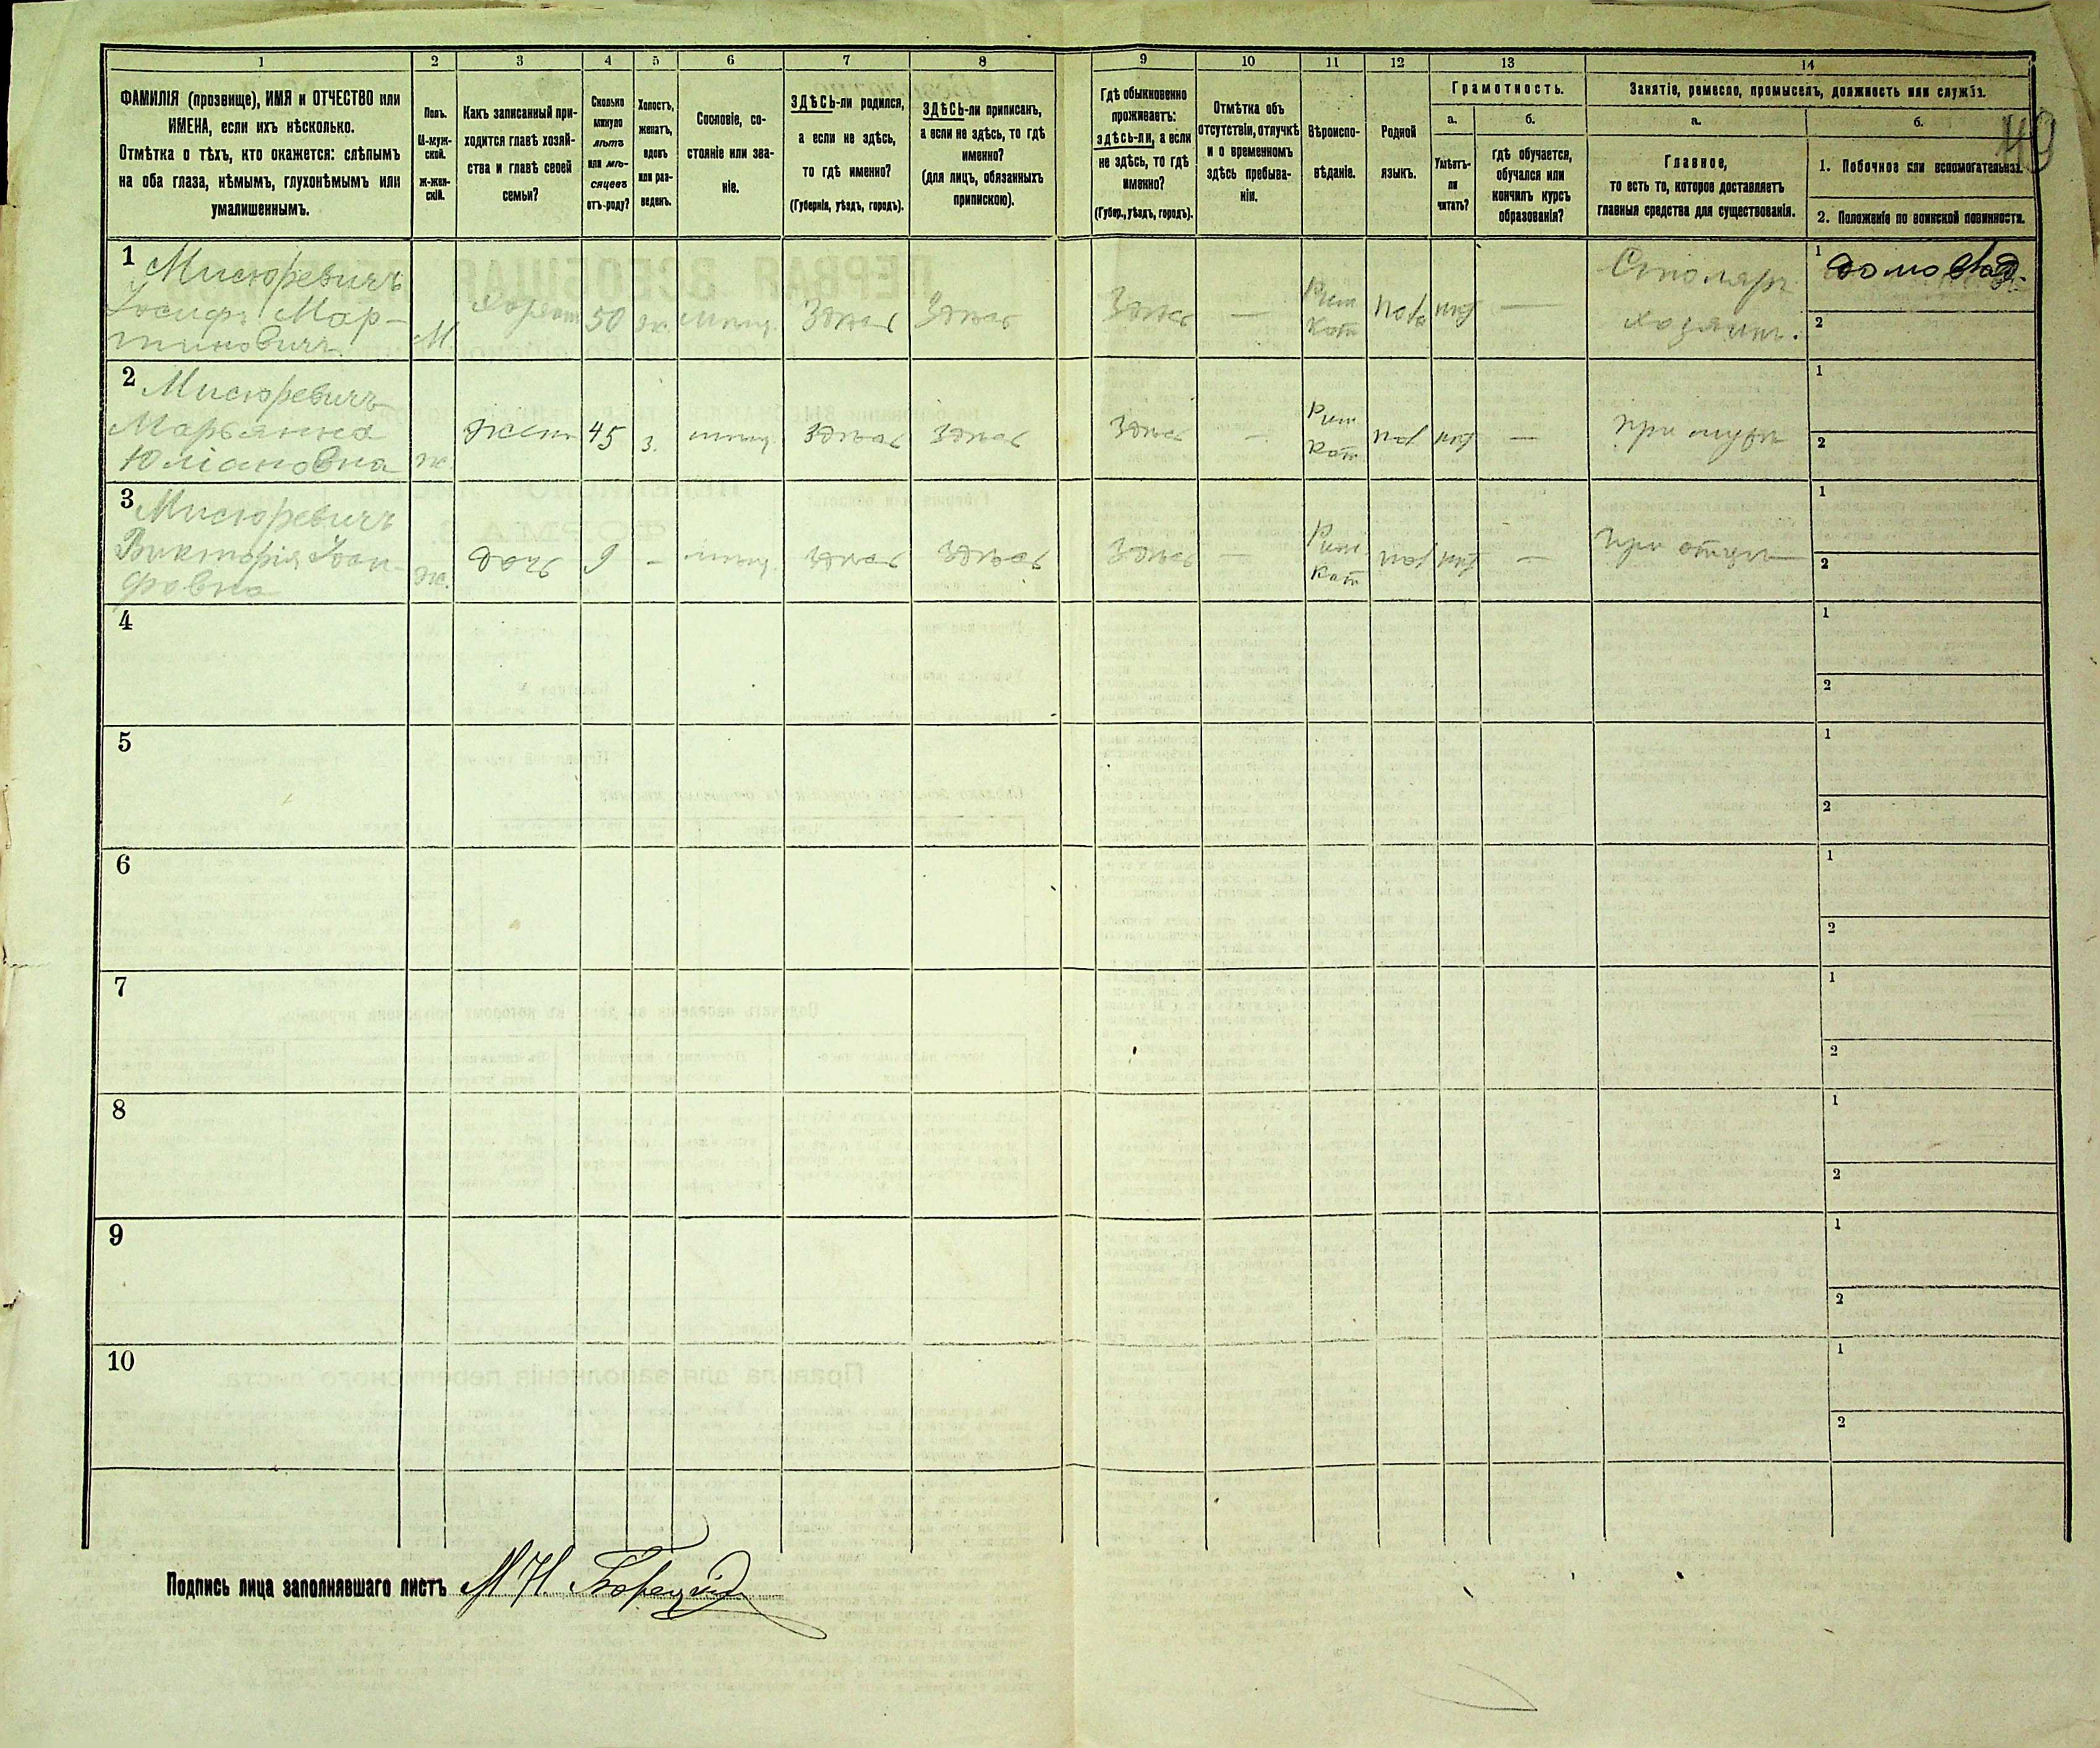 1 2 3 4 5 6 7 8 9 10 11 12 13 14
ФАМИЛІЯ (прозвище), ИМЯ и ОТЧЕСТВО или
ИМЕНА, если ихъ нѣсколько.
Отмѣтка о тѣхъ, кто окажется: слѣпымъ
на оба глаза, нѣмымъ, глухонѣмымъ или
умалишеннымъ.
Полъ.
М-муж-
ской.
Ж-жен-
скій.
Какъ записанный при-
ходится главѣ хозяй-
ства и главѣ своей
семьи?
Сколько
минуло
лѣтъ
или мѣ-
сяцевъ
отъ-роду?
Холостъ,
женатъ,
вдовъ
или раз-
веденъ.
Сословіе, со-
стояніе или зва-
ніе.
ЗДѢСЬ-ли родился,
а если не здѣсь,
то гдѣ именно?
(Губернія, уѣздъ, городъ).
ЗДѢСЬ-ли приписанъ,
а если не здѣсь, то гдѣ
именно?
(для лицъ, обязанныхъ
припискою).
Гдѣ обыкновенно
проживаетъ:
здѣсь-ли, а если
не здѣсь, то гдѣ
именно?
(Губер., уѣздъ, городъ).
Отмѣтка объ
отсутствіи, отлучкѣ
и о временномъ
здѣсь пребыва-
ніи.
Вѣроиспо-
вѣданіе.
Родной
языкъ.
Грамотность.
а.
Умѣетъ-
ли
читать?
б.
гдѣ обучается,
обучался или
кончилъ курсъ
образованія?
Занятіе, ремесло, промыселъ, должность или служба.
а.
Главное,
то есть то, которое доставляетъ
главныя средства для существованія.
б.
1. Побочное или вспомогательное.
2. Положеніе по воинской повинности.
1 Мисюревичъ
Іосифъ Мар-
тиновичъ
М.
50
Здѣсь
Здѣсь
Здѣсь
—
Рим
Кат
—
Столяръ
хозяинъ.
1 домовлад.
2
2 Мисюревичъ
Марьянна
Юліановна
ж.
жена
45
з.
здѣсь
здѣсь
здѣсь
—
Рим
Кат
—
при мужѣ
1
2
3 Мисюревичъ
Викторія Іоси-
фовна
ж.
дочь
9
—
здѣсь
здѣсь
здѣсь
—
Рим
Кат
—
при отцѣ
1
2
4
1
2
5
1
2
6
1
2
7
1
2
8
1
2
9
1
2
10
1
2
Подпись лица заполнявшаго листъ М Н Борецкій